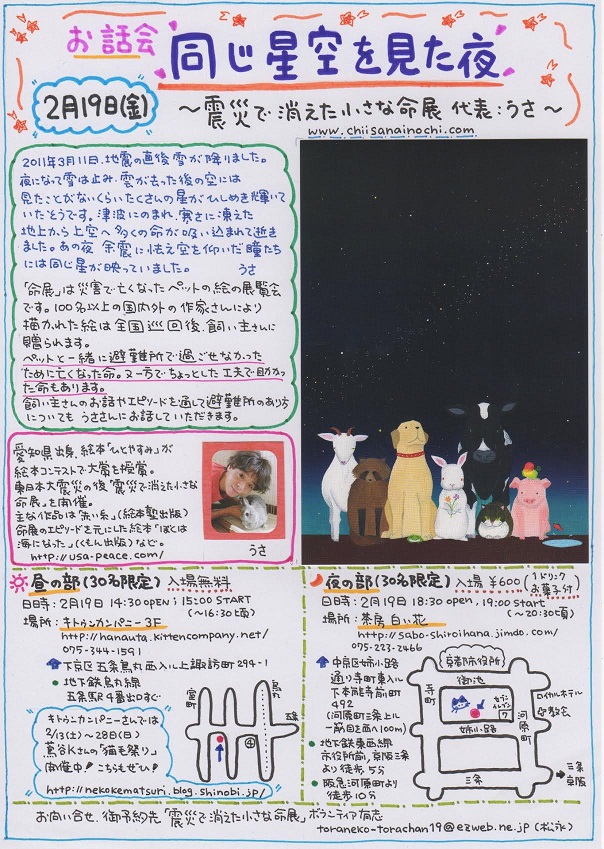 お話会
同じ星空を見た夜
2月19日(金)
～震災で消えた小さな命展 代表:うさ～
www.chiisanainochi.com
2011年3月11日、地震の直後雪が降りました。
夜になって雪は止み、雲が去った後の空には
見たことがないくらいたくさんの星がひしめき輝いて
いたそうです。津波にのまれ、寒さに凍えた
地上から上空へ多くの命が吸い込まれて逝き
ました。あの夜 余震に怯え空を仰いだ瞳たち
には同じ星が映っていました。 うさ
「命展」は災害で亡くなったペットの絵の展覧会
です。100名以上の国内外の作家さんにより
描かれた絵は全国巡回後、飼い主さんに
贈られます。
ペットと一緒に避難所で過ごせなかった
ために亡くなった命。又一方でちょっとした工夫で助かっ
た命もあります。
飼い主さんのお話やエピソードを通して避難所のあり方
についても うささんにお話していただきます。
愛知県出身 絵本「ひとやすみ」が
絵本コンテストで大賞を授賞。
東日本大震災の後「震災で消えた小さな
命展」を開催。
主な作品は「洗い糸」(絵本塾出版)
命展のエピソードを元にした絵本「ぼくは
海になった」(くもん出版)など。
http://usa-peace.com/
うさ
昼の部(30名限定) 入場無料
日時:2月19日 14:30 OPEN ; 15:00 START
(～16:30頃)
場所:キトゥンカンパニー3F
http://hanauta.kittencompany.net/
075-344-1591
下京区 五条烏丸西入ル上諏訪町294-1
地下鉄烏丸線
五条駅4番出口すぐ
キトゥンカンパニーさんでは
2/13(土)～28日(日)
蔦谷さんの「猫毛祭り」
開催中!こちらもぜひ!
http://nekokematsuri.blog.shinobi.jp/
室町
烏丸
五条
④
夜の部(30名限定) 入場 ¥600 (1ドリンク お菓子付)
日時:2月19日 18:30 open, 19:00 start
(～20:30頃)
場所:茶房 白い花
http://sabo-shiroihana.jimdo.com/
075-223-2466
中京区姉小路
通り寺町東入ル
下本能寺前町
492
(河原町三条上ル
一筋目を西へ100m)
地下鉄東西線
市役所前、京阪三条
より徒歩5分
阪急河原町より
徒歩10分
京都市役所
御池
寺町
セブンイレブン
7
河原町
ロイヤルホテル
教会
姉小路
三条
三条
京阪
お問い合せ、御予約先「震災で消えた小さな命展」ボランティア有志
toraneko-torachan19@ezweb.ne.jp (松永)